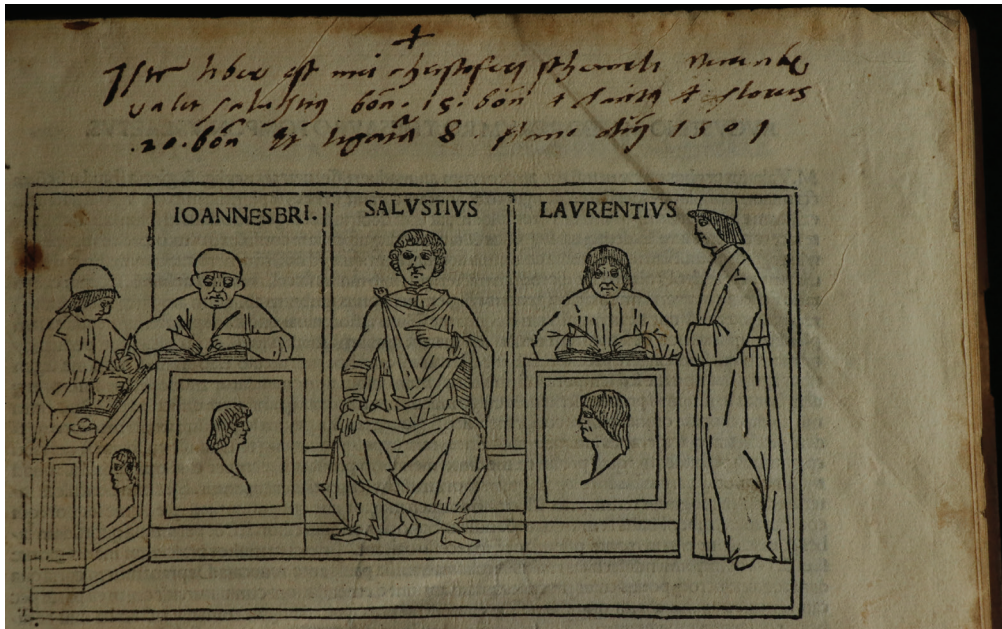 Iste liber est mei christoferi scheurli Nurenbe
valet salustius bon. 15. bon 4 dantes 4 florus
.20. bon Et ligatura 8. Anno dni 1501
IOANNES BRI. SALVSTIVS LAVRENTIVS